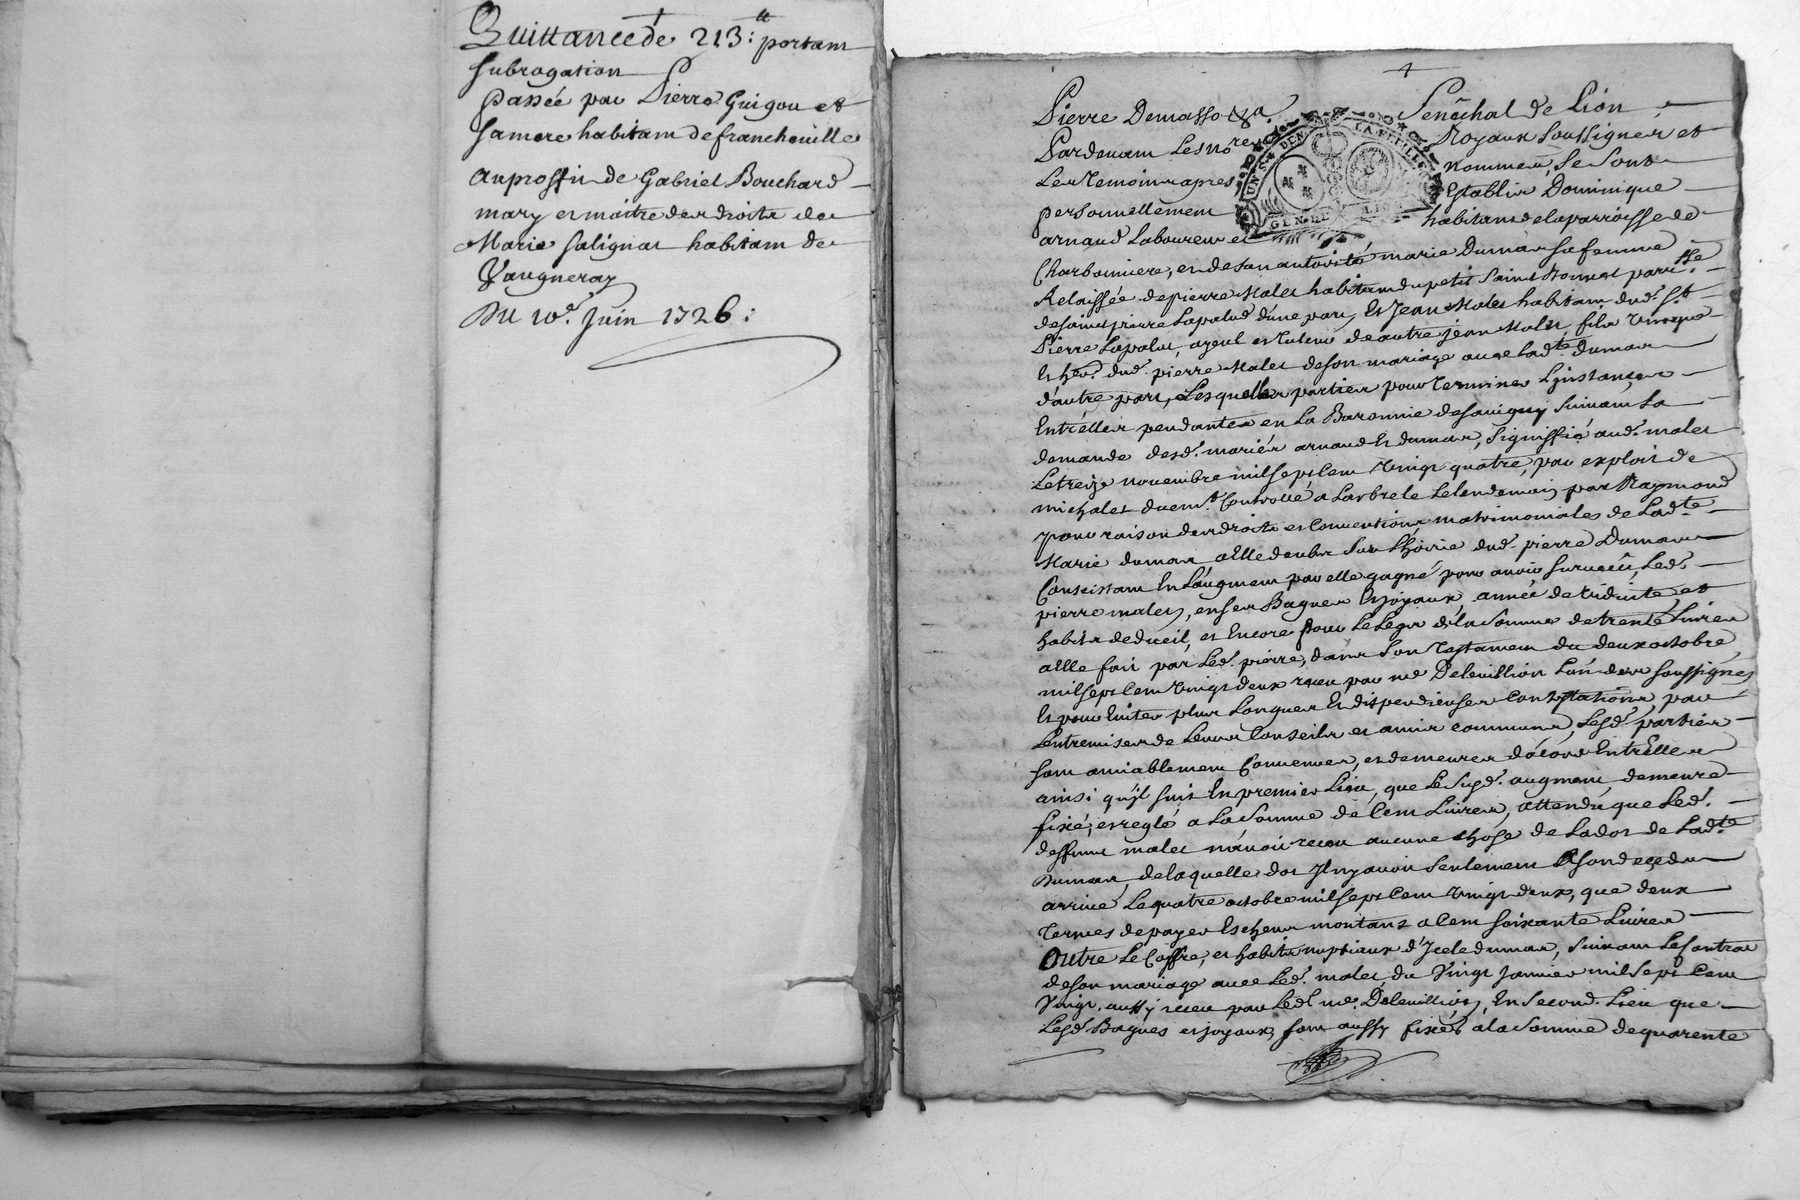 Quittance de 213:tt portam
subrogation
passée par Pierre Guigou et
sa mere habitam de francheuille
au proffit de Gabriel Bouchard
mary et maitre des droits de
Marie Salignat habitam de
Vaugneray
Du 10e. Juin 1726:
Pierre Demasso &a. Senêchal de Lion
Pardevam les nores Royaux soussignés et
les temoins apres nommeu, se sont
personnellement establis Dominique
arnaud laboureur et habitam de la parroisse de
Charbonniere, et de son autorité marie Dumas sa femme
Relaissée de pierre Malet habitam du petit Saint Bonnet parrsse
de saint pierre Lapalud d'une part, Et Jean Malet habitam dud. St
Pierre Lapalu, ayeul et tuteur de autre jean Malet, fils unique
Et her. dud. pierre Malet de son mariage avec ladte dumas
d'autre part, Lesquelles parties pour terminer L'jnstance
Entrelles pendante en La Baronnie de savigny suivam La
demande desd. mariés arnaud Et dumas, signiffié aud. malet
Le treize novembre mil sept cem vingt quatre, par exploit de
michalet duemt. Controllé a Larbrele Le lendemain par Raymond
pour raison des droits et Conventions matrimoniales de Ladte.
Marie dumas a Elle deubs sur L'hoirie dud. pierre Dumas
Consistam En L'augment par elle gagné pour avoir survecû, Led.
pierre malet, en ses Bagues Et joyaux, année de viduité, et
habits de dueil, et Encore pour Le Legs de la somme de trente Livres
a Elle fait par Led. pierre, dans son Testament du deux octobre
mil sept cem vingt deux receu par me Deleuillion L'un des soussignés
Et pour Eviter plus Longues Et dispendieuses Contestations, par
L'entremise de Leurs Conseils et amis communs, Lesd. parties
sont amiablement Convenues, et demeurées d'acord Entr'Elles
ainsi qu'jl suit En premier Lieu, que Le susd. augment, demeure
fixé, et reglé a La somme de Cem Livres, attendu que Led.
deffunt malet n'avoit receu aucune chose de La dot de Ladte
Dumas, de laquelle dot Jl n'y avoit seulement a son decedu
arrivé Le quatre octobre mil sept cem vingt deux, que deux
termes de payes Escheus montant a Cem soixante Livres
Outre Le Coffre, et habits nuptiaux d'Jcele dumas, suivam Le Contrat
de son mariage avec Led. malet du vingt Janvier mil sept Cem
Vingt, aussy receu par Led. me. Deleuillion, En second Lieu que
Lesd. Bagues et joyaux, sont aussy fixés a la somme de quarente